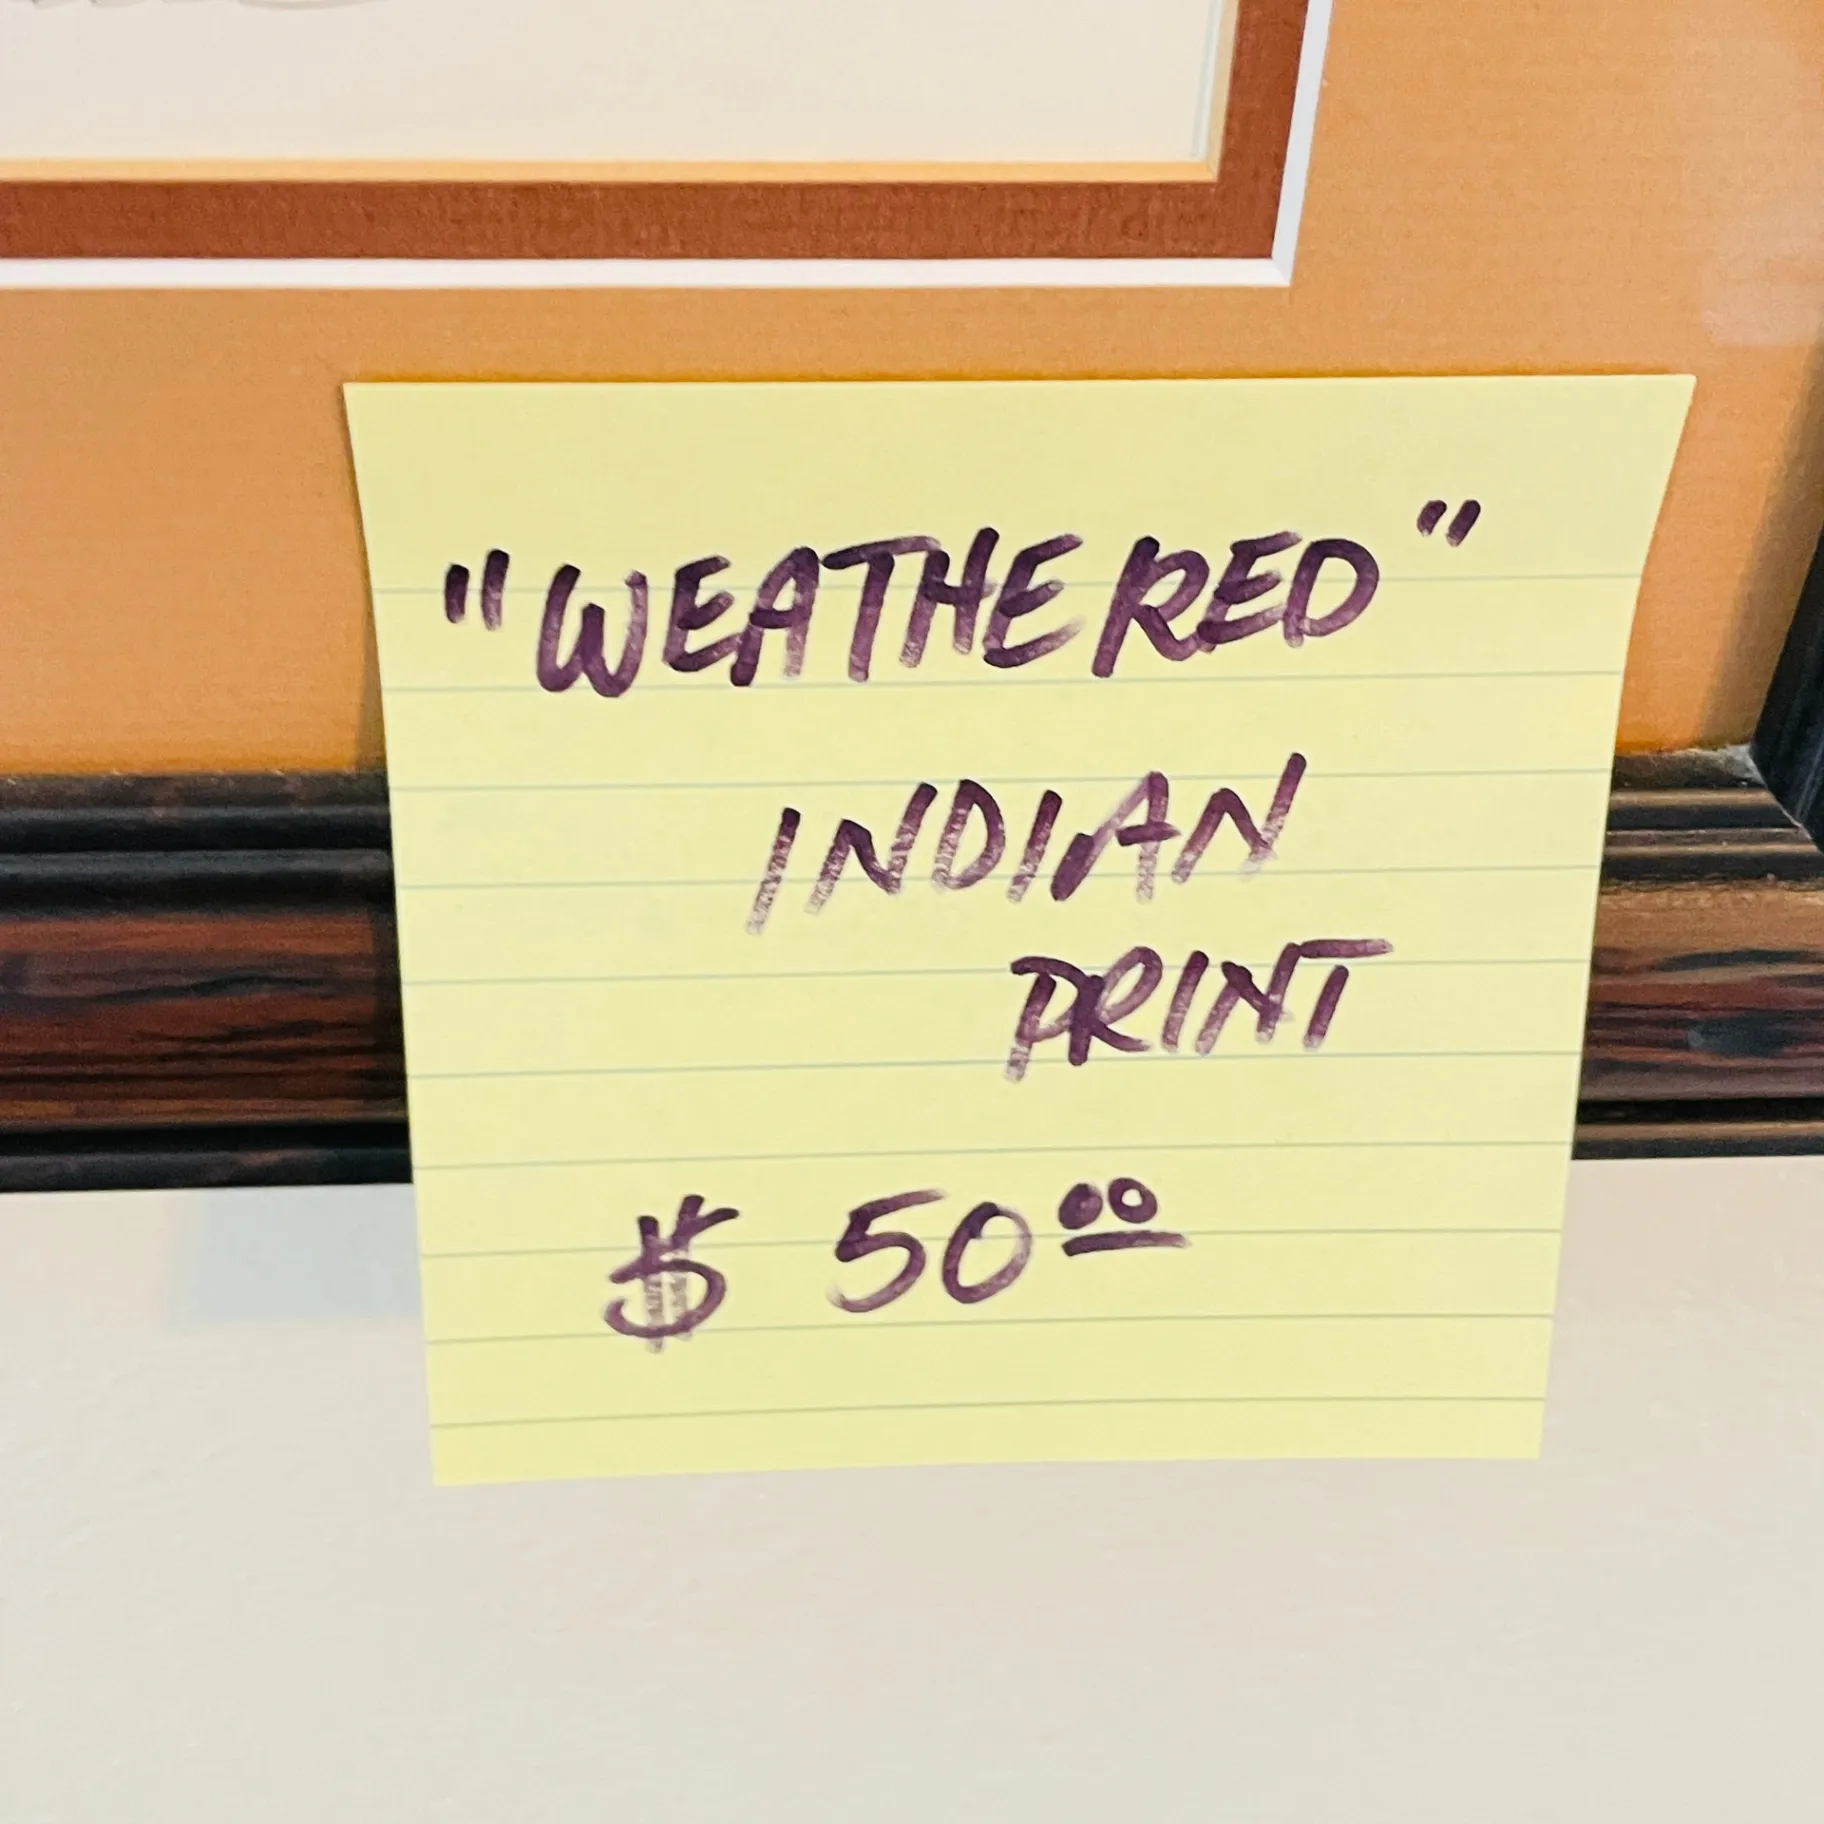 "WEATHERED"
INDIAN
PRINT
$ 50⁰⁰